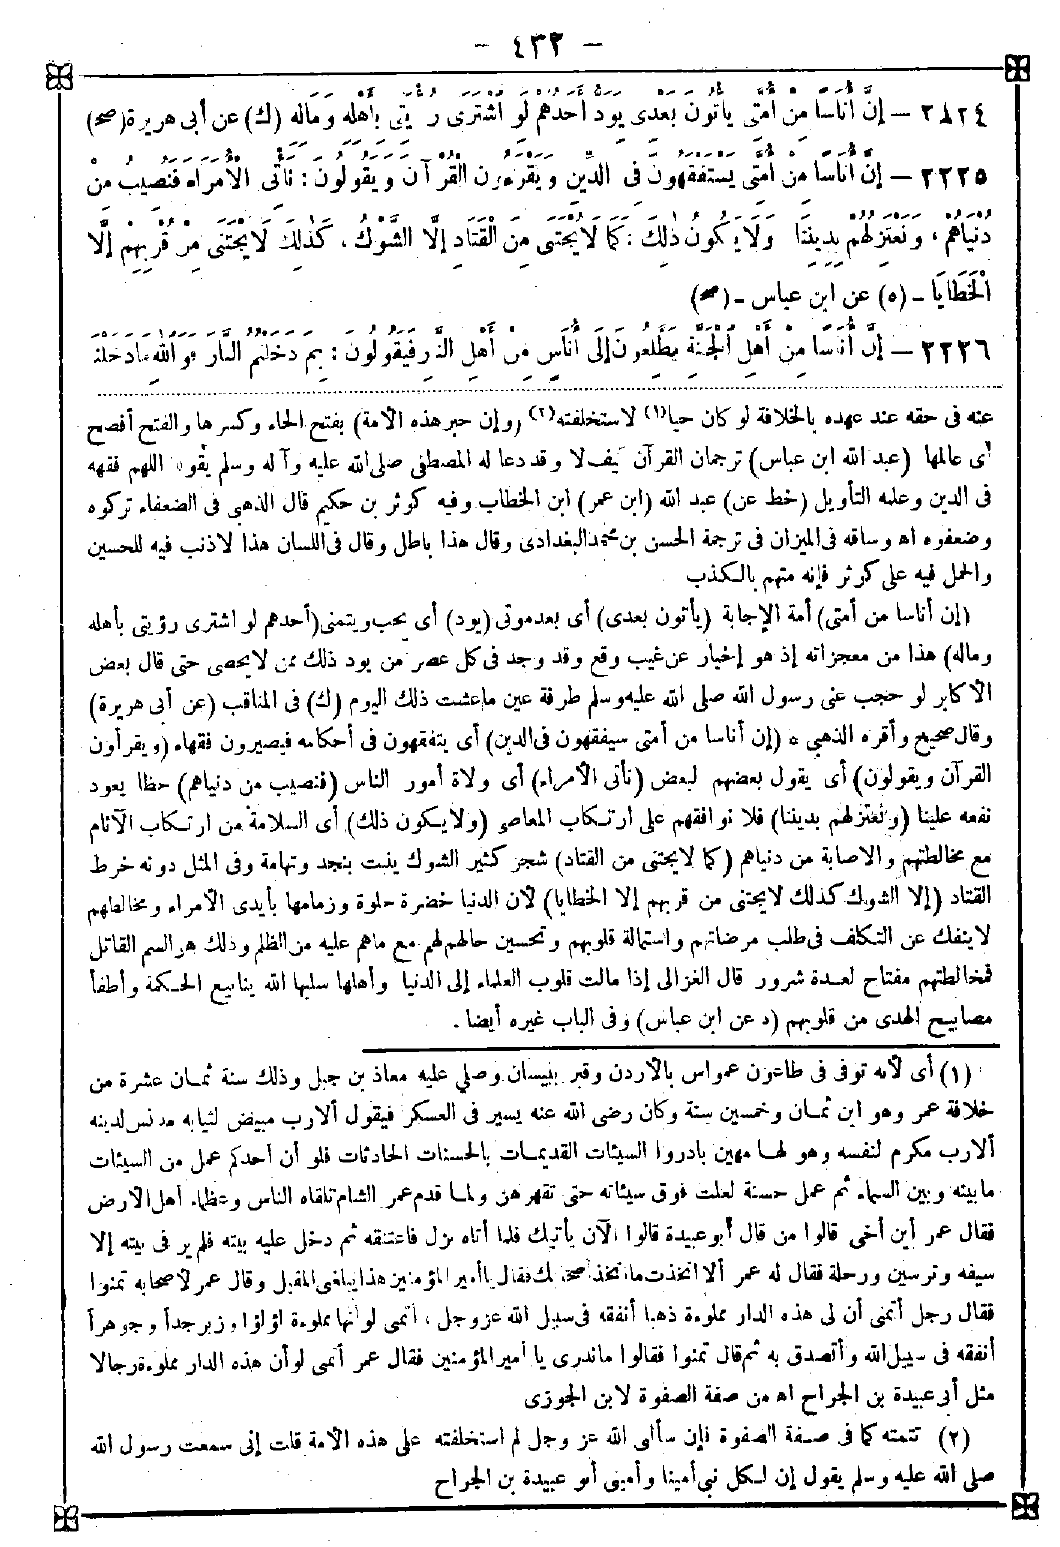 - ٤٣٢ -
٢٢٢٤ — إِنَّ أُنَاسًا مِنْ أُمَّتِى يَأْتُونَ بَعْدِى يَوَدُّ أَحَدُهُمْ لَوِ اشْتَرَى رُؤْيَتِى بِأَهْلِهِ وَمَالِهِ (ك) عن أبى هريرة (صح)
٢٢٢٥ — إِنَّ أُنَاسًا مِنْ أُمَّتِى يَسْتَفْقِهُونَ فِى الدِّينِ وَيَقْرَءُونَ الْقُرْآنَ وَيَقُولُونَ: نَأْتِى الْأُمَرَاءَ فَنُصِيبُ مِنْ
دُنْيَاهُمْ، وَنَعْتَزِلُهُمْ بِدِينِنَا وَلَا يَكُونُ ذٰلِكَ: كَمَا لَا يُجْتَنَى مِنَ الْقَتَادِ إِلَّا الشَّوْكُ، كَذٰلِكَ لَا يُجْتَنَى مِنْ قُرْبِهِمْ إِلَّا
الْخَطَايَا - (ه) عن ابن عباس - (صح)
٢٢٢٦ — إِنَّ أُنَاسًا مِنْ أَهْلِ الْجَنَّةِ يَطَّلِعُونَ إِلَى أُنَاسٍ مِنْ أَهْلِ النَّارِ فَيَقُولُونَ: بِمَ دَخَلْتُمُ النَّارَ فَوَاللهِ مَا دَخَلْنَا
عنه فى حقه عند عهده بالخلافة لو كان حيا (١) لاستخلفته (٢) (وإن حبر هذه الأمة) بفتح الحاء وكسرها والفتح أفصح
أى عالمها (عبد الله ابن عباس) ترجمان القرآن كيف لا وقد دعا له المصطفى صلى الله عليه وآله وسلم بقوله اللهم فقهه
فى الدين وعلمه التأويل (خط عن) عبد الله (ابن عمر) ابن الخطاب وفيه كوثر بن حكيم قال الذهبى فى الضعفاء تركوه
وضعفوه اه وساقه فى الميزان فى ترجمة الحسن بن محمد البغدادى وقال هذا باطل وقال فى اللسان هذا لاذنب فيه للحسين
والحمل فيه على كوثر فإنه متهم بالكذب
(إن أناسا من أمتى) أمة الإجابة (يأتون بعدى) أى بعد موتى (يود) أى يحب ويتمنى (أحدهم لو اشترى رؤيتى بأهله
وماله) هذا من معجزاته إذ هو إخبار عن غيب وقع وقد وجد فى كل عصر من يود ذلك ممن لا يحصى حتى قال بعض
الأكابر لو حجب عنى رسول الله صلى الله عليه وسلم طرفة عين ما عشت ذلك اليوم (ك) فى المناقب (عن أبى هريرة)
وقال صحيح وأقره الذهبى * (إن أناسا من أمتى سيفقهون فى الدين) أى يتفقهون فى أحكامه فيصيرون فقهاء (ويقرأون
القرآن ويقولون) أى يقول بعضهم لبعض (نأتى الأمراء) أى ولاة أمور الناس (فنصيب من دنياهم) حظا يعود
نفعه علينا (ونعتزلهم بديننا) فلا نوافقهم على ارتكاب المعاصى (ولا يكون ذلك) أى السلامة من ارتكاب الآثام
مع مخالطتهم والاصابة من دنياهم (كما لا يجتنى من القتاد) شجر كثير الشوك ينبت بنجد وتهامة وفى المثل دونه خرط
القتاد (إلا الشوك كذلك لا يجتنى من قربهم إلا الخطايا) لأن الدنيا خضرة حلوة وزمامها بأيدى الأمراء ومخالطهم
لا ينفك عن التكلف فى طلب مرضاتهم واستمالة قلوبهم وتحسين حالهم لهم مع ماهم عليه من الظلم وذلك هو السم القاتل
فمخالطتهم مفتاح لعدة شرور قال الغزالى إذا مالت قلوب العلماء إلى الدنيا وأهلها سلبها الله ينابيع الحكمة وأطفأ
مصابيح الهدى من قلوبهم (ه عن ابن عباس) وفى الباب غيره أيضا.
(١) أى لأنه توفى فى طاعون عمواس بالأردن وقبر ببيسان وصلي عليه معاذ بن جبل وذلك سنة ثمان عشرة من
خلافة عمر وهو ابن ثمان وخمسين سنة وكان رضى الله عنه يسير فى العسكر فيقول ألارب مبيض لثيابه مدنس لدينه
ألارب مكرم لنفسه وهو لها مهين بادروا السيئات القديمات بالحسنات الحادثات فلو أن أحدكم عمل من السيئات
ما بينه وبين السماء ثم عمل حسنة لعلت فوق سيئاته حتى تقهرهن ولما قدم عمر الشام تلقاه الناس وعظماء أهل الأرض
فقال عمر أين أخى قالوا من قال أبو عبيدة قالوا الآن يأتيك فلما أتاه نزل فاعتنقه ثم دخل عليه بيته فلم ير فى بيته إلا
سيفه وترسين ورحلة فقال له عمر ألا اتخذت ما اتخذ أصحابك فقال يا أمير المؤمنين هذا يبلغنى المقيل وقال عمر لأصحابه تمنوا
فقال رجل أتمنى أن لى هذه الدار مملوءة ذهبا أنفقه فى سبيل الله عز وجل، أتمنى لو أنها مملوءة لؤلؤا وزبرجدا وجوهرا
أنفقه فى سبيل الله وأتصدق به ثم قال تمنوا فقالوا ما ندرى يا أمير المؤمنين فقال عمر أتمنى لو أن هذه الدار مملوءة رجالا
مثل أبى عبيدة بن الجراح اه من صفة الصفوة لابن الجوزى
(٢) تتمته كما فى صفة الصفوة فإن سألنى الله عز وجل لم استخلفته على هذه الأمة قلت إنى سمعت رسول الله
صلى الله عليه وسلم يقول إن لكل نبى أمينا وأمينى أبو عبيدة بن الجراح